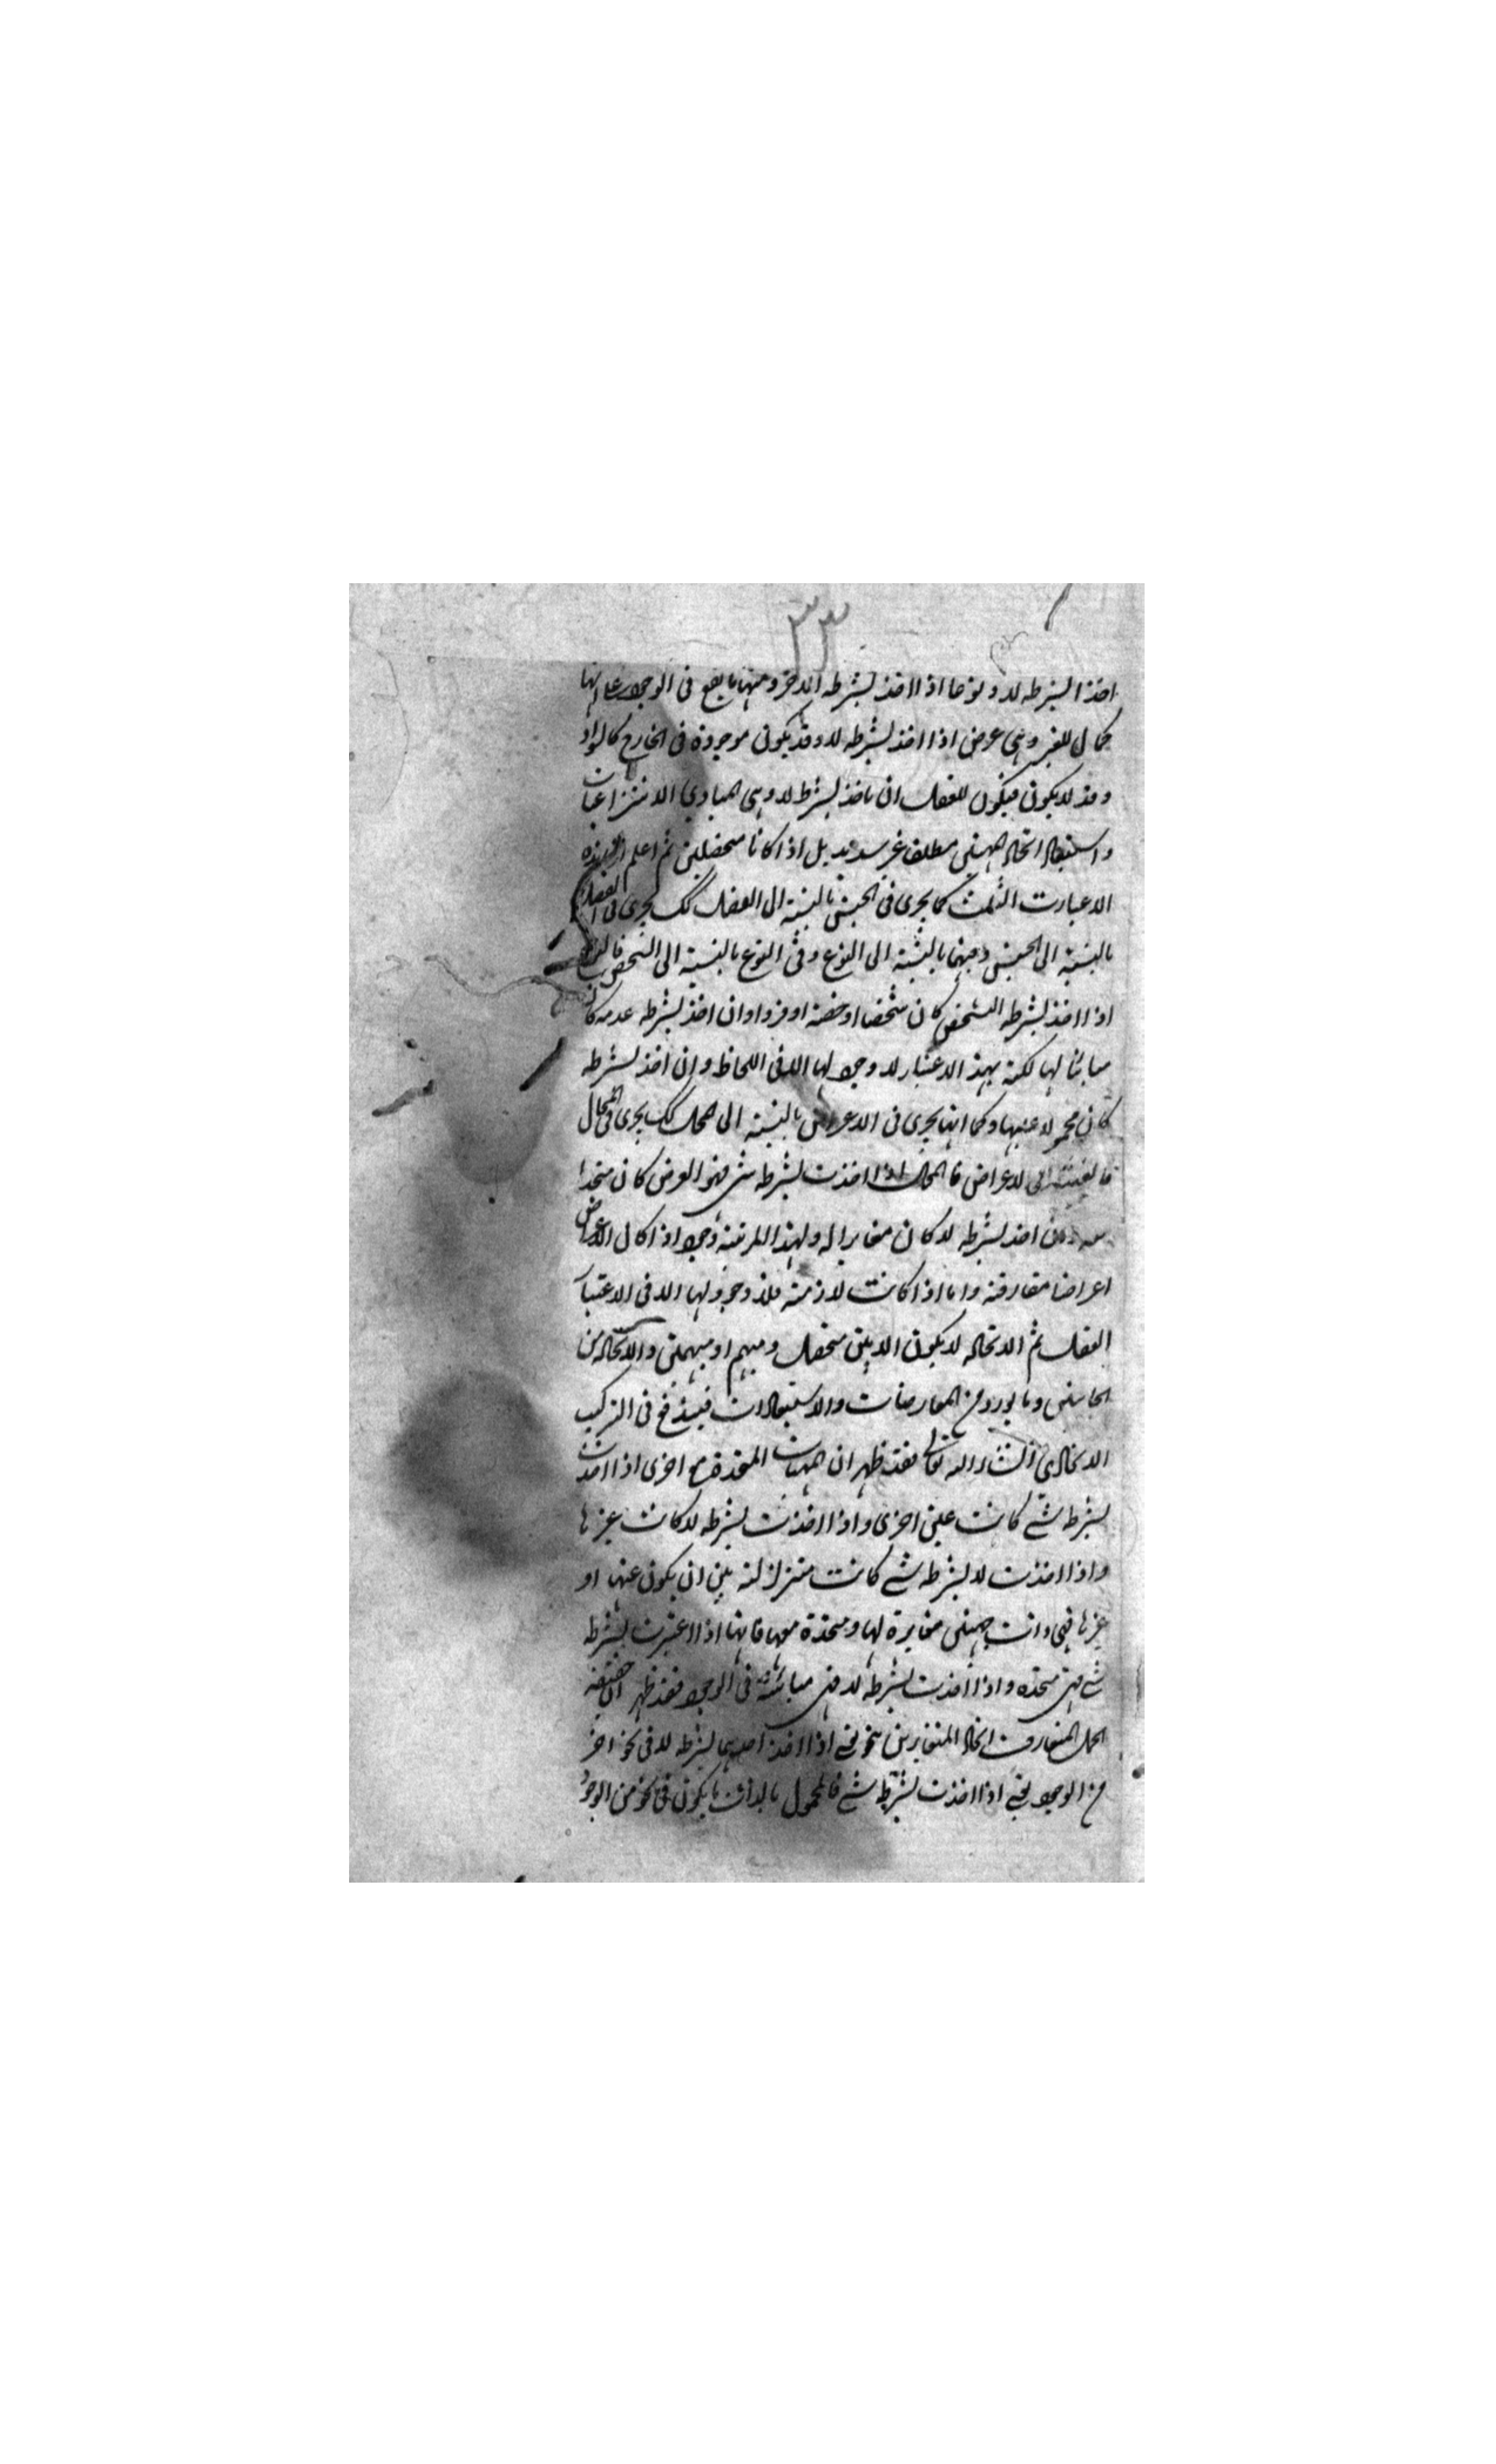 ٣٣
اخذا لشرط لا ونوعا اذا اخذ بشرط الاخر ومنها ما يقع فى الوجود على انها
كمال للغير وهى عرض اذا اخذ بشرط لا وقد يكون موجودة فى الخارج كالسواد
وقد لا يكون فيكون للعقل ان ياخذ بشرط لا وهى المبادى الانتزاعيات
واستبعاد اتحاد المهيتين مطلقا غير سديد بل اذا كانا متحصلين ثم اعلم ان هذه
الاعبارت الثلث كما يجرى فى الجنس بالنسبة الى الفصل كك يجرى فى الفصل
بالنسبة الى الجنس وفيهما بالنسبة الى النوع وفى النوع بالنسبة الى الشخص فالنوع
اذا اخذ بشرط الشخص كان شخصا او حصة او فردا وان اخذ بشرط عدمه كان
مبائنا لها لكنه بهذا الاعتبار لا وجود لها الا فى اللحاظ وان اخذ لا بشرط
كان محمولا عليها وكما انها يجرى فى الاعراض بالنسبة الى المحال كك يجرى فى المحال
بالنسبة الى الاعراض فالمحال اذا اخذت بشرط شى فهو العرض كان متحدا
معه وان اخذ بشرط لا كان مغايرا له ولهذا المرتبة وجود اذا كان الاعراض
اعراضا مفارقة واما اذا كانت لازمة فلا وجود لها الا فى الاعتبار
العقل ثم الاتحاد لا يكون الا بين متحصل ومبهم او مبهمين والاتحاد من
الجانبين وما يورد من المعارضات والاستبعادات فيندفع فى التركيب
الاتحادى انشاء الله تعالى فقد ظهر ان المهيات المتحدة مع اخرى اذا اخذت
بشرط شئ كانت عين اخرى واذا اخذت بشرط لا كانت غيرها
واذا اخذت لا بشرط شئ كانت متزلزلة بين ان يكون عينها او
غيرها فهى ذات جهتين مغايرة لها ومتحدة معها فانها اذا اعتبرت بشرط
شئ فهى متحدة واذا اخذت بشرط لا فهى مبائنة فى الوجود فقد ظهر ان حقيقة
الحمل المتعارف اتحاد المتغايرين بنحو يعنى اذا اخذ احدهما بشرط لا فى نحو اخر
من الوجود يعنى اذا اخذت بشرط شئ فالمحمول بالذات ما يكون فى نحو من الوجود